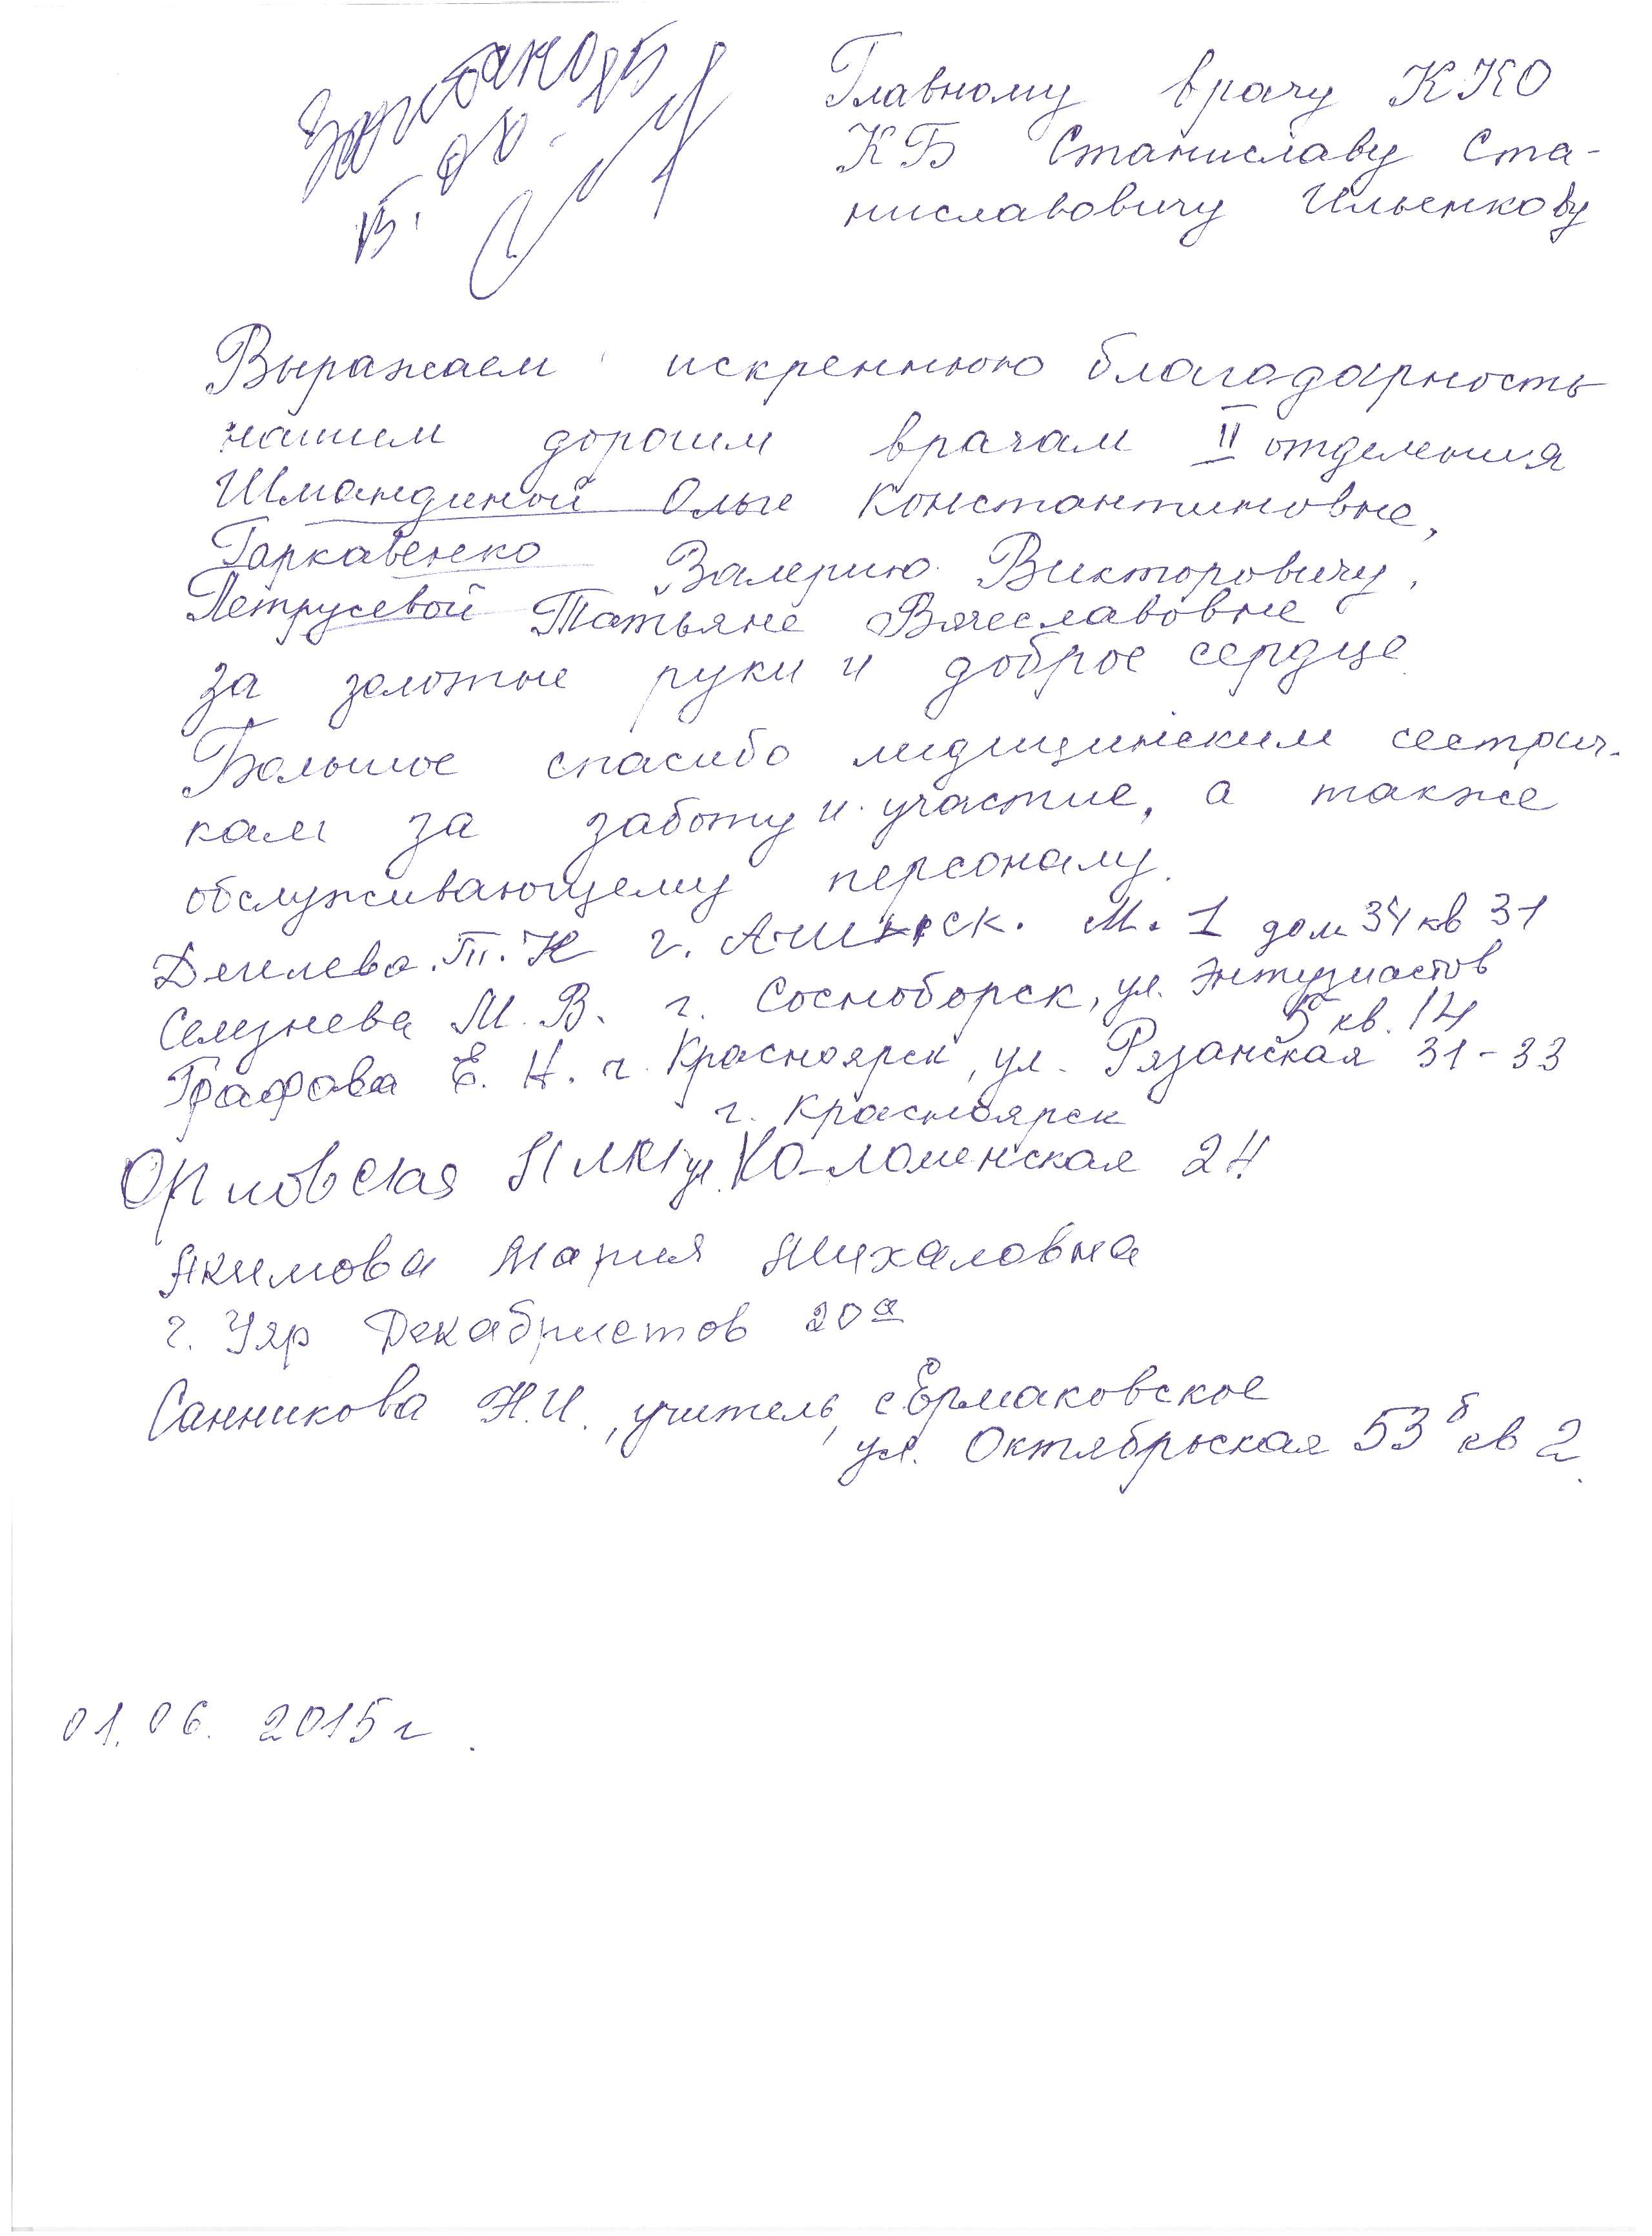 Главному врачу ККО
КБ Станиславу Ста-
ниславовичу Ильенкову
Выражаем искреннюю благодарность
нашим дорогим врачам II отделения
Шмандиной Ольге Константиновне,
Гаркавенко Валерию Викторовичу,
Петрусевой Татьяне Вячеславовне
за золотые руки и доброе сердце
Большое спасибо медицинским сестрич-
кам за заботу и участие, а также
обслуживающему персоналу.
Т. Н г. М. 1 дом 34 кв 31
Селезнева М. В. г. Сосноборск, ул. Энтузиастов
5 кв. 14
Графова Е. Н. г. Красноярск, ул. Рязанская 31-33
г. Красноярск
ул. Коломенская 24
Акимова Мария Михаловна
г. Уяр Декабристов 20а
Санникова Н.И., учитель, с Ермаковское
ул. Октябрьская 53б кв 2.
01.06. 2015 г.